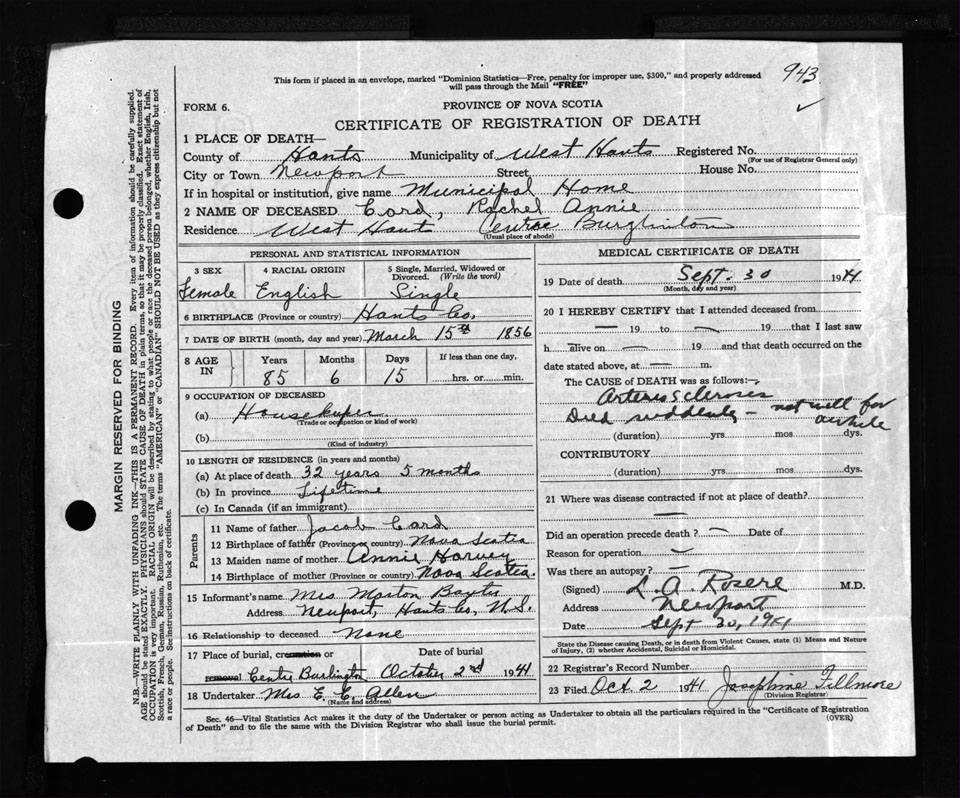 943
This form if placed in an envelope, marked "Dominion Statistics—Free, penalty for improper use, $300," and properly addressed
will pass through the Mail "FREE"
FORM 6.
PROVINCE OF NOVA SCOTIA
CERTIFICATE OF REGISTRATION OF DEATH
1 PLACE OF DEATH—
County of Hants Municipality of West Hants Registered No.
(For use of Registrar General only)
City or Town Newport Street House No.
If in hospital or institution, give name Municipal Home
2 NAME OF DECEASED Card, Rachel Annie
Residence West Hants Centre Burglinton
(Usual place of abode)
PERSONAL AND STATISTICAL INFORMATION
3 SEX 4 RACIAL ORIGIN 5 Single, Married, Widowed or
Divorced. (Write the word)
Female English Single
6 BIRTHPLACE (Province or country) Hants Co.
7 DATE OF BIRTH (month, day and year) March 15th 1856
8 AGE IN Years Months Days If less than one day,
85 6 15 hrs. or min.
9 OCCUPATION OF DECEASED
(a) Housekeeper
(Trade or occupation or kind of work)
(b)
(Kind of industry)
10 LENGTH OF RESIDENCE (in years and months)
(a) At place of death 32 years 5 months
(b) In province Lifetime
(c) In Canada (if an immigrant)
Parents
11 Name of father Jacob Card
12 Birthplace of father (Province or country) Nova Scotia
13 Maiden name of mother Annie Harvey
14 Birthplace of mother (Province or country) Nova Scotia.
15 Informant's name Mrs Morton Baxter
Address Newport, Hants Co, N.S.
16 Relationship to deceased None
17 Place of burial, cremation or Date of burial
removal Centre Burlington October 2nd 1941
18 Undertaker Mrs E. E. Allen
(Name and address)
MEDICAL CERTIFICATE OF DEATH
19 Date of death Sept. 30 1941
(Month, day and year)
20 I HEREBY CERTIFY that I attended deceased from
— 19 to — 19 that I last saw
h alive on — 19 and that death occurred on the
date stated above, at — m.
The CAUSE OF DEATH was as follows:—
Arteriosclerosis
Died suddenly – not well for
awhile
(duration) yrs. mos dys.
CONTRIBUTORY
(duration) yrs. mos. dys.
21 Where was disease contracted if not at place of death?
—
Did an operation precede death? — Date of
Reason for operation —
Was there an autopsy? —
(Signed) L. A. Rosere M.D.
Address Newport
Date Sept 30, 1941
State the Disease causing Death, or in death from Violent Causes, state (1) Means and Nature
of Injury, (2) whether Accidental, Suicidal or Homicidal.
22 Registrar's Record Number
23 Filed Oct 2 1941 Josephine Fillmore
(Division Registrar)
Sec. 46—Vital Statistics Act makes it the duty of the Undertaker or person acting as Undertaker to obtain all the particulars required in the "Certificate of Registration
of Death" and to file the same with the Division Registrar who shall issue the burial permit.
(OVER)
MARGIN RESERVED FOR BINDING
N.B.—WRITE PLAINLY WITH UNFADING INK—THIS IS A PERMANENT RECORD. Every item of information should be carefully supplied.
AGE should be stated EXACTLY. PHYSICIANS should STATE CAUSE OF DEATH in plain terms, so that it may be properly classified. Exact statement of
OCCUPATION is very important. RACIAL ORIGIN will be described by stating to what people or race the deceased person belonged, whether English, Irish,
Scottish, French, German, Russian, Ruthenian, etc. The terms "AMERICAN" or "CANADIAN" SHOULD NOT BE USED as they express citizenship but not
a race or people. See instructions on back of certificate.